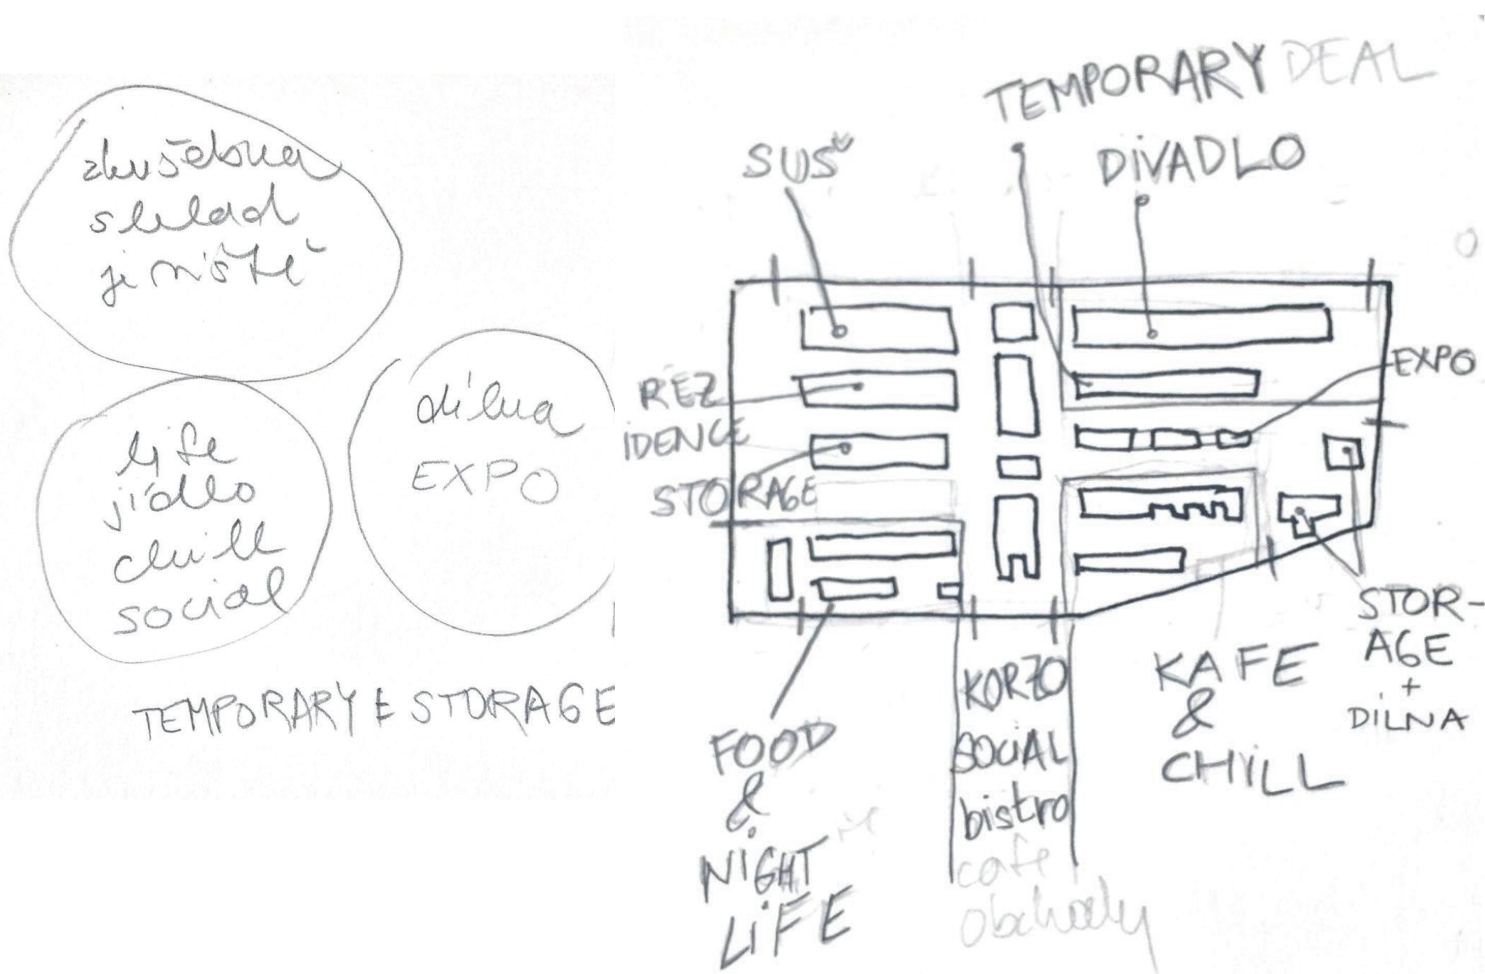 zkušebna
sklad
jeviště
life
jídlo
chill
social
dílna
EXPO
TEMPORARY & STORAGE
TEMPORARY DEAL
DIVADLO
SUŠ
REZ
IDENCE
STORAGE
EXPO
STOR-
AGE
+
DILNA
KAFE
&
CHILL
FOOD
&
NIGHT
LIFE
KORZO
SOCIAL
bistro
cafe
obchody